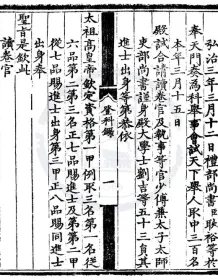 弘治三年三月十一日禮部尚書臣耿裕等於
奉天門奏為科舉事會試天下舉人取中三百名
本年三月十五日
殿試合請讀卷官及執事等官少傅兼太子太師
吏部尚書謹身殿大學士劉吉等五十三員其
進士出身等第恭依
登科錄 一
太祖高皇帝欽定資格第一甲例取三名第一名從
六品第二第三名正七品賜進士及第第二甲
從七品賜進士出身第三甲正八品賜同進士
出身奉
聖旨是欽此
讀卷官